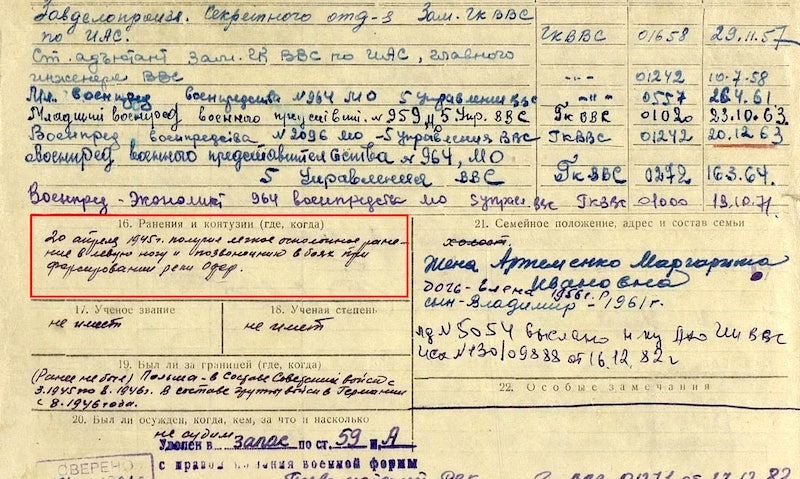 Завделопроизв. Секретного отд-я Зам. ГК ВВС
по ИАС. ГКВВС 01658 29.11.57
Ст. адъютант Зам. ГК ВВС по ИАС, главного
инженера ВВС -"- 01242 10.7.58
военпред военпредства №964 МО 5 Управления ВВС -"- 0557 26.4.61
Младший военпред военного №959 5 Упр. ВВС ГкВВС 01020 23.10.63
Военпред военпредства №2096 МО-5 Управления ВВС ГКВВС 01242 20.12.63
Военпред военного представительства №964, МО
5 Управления ВВС ГкВВС 0272 16.3.64.
Военпред-Экономист 964 военпредства МО 5 управ. ВВС ГКВВС 01000 19.10.71.
16. Ранения и контузии (где, когда)
20 апреля 1945г. получил легкое осколочное ране-
ние в левую ногу и позвоночник в боях при
форсировании реки Одер.
17. Ученое звание
не имеет
18. Ученая степень
не имеет
19. Был ли за границей (где, когда)
(Ранее не был) Польша - в Составе Советских войск с
3.1945 по 8.1946г. В составе группы войск в Германии
с 8.1946 года.
20. Был ли осужден, когда, кем, за что и насколько
не судим
Уволен в запас по ст. 59 п. А
с правом ношения военной формы
СВЕРЕНО
21. Семейное положение, адрес и состав семьи
холост.
Жена Артеменко Маргарита
Ивановна
дочь-Елена 1956г.р.
сын-Владимир-1961г.
лд №5054 выслано
Исх №130/09888 от 16.12.82г
22. Особые замечания